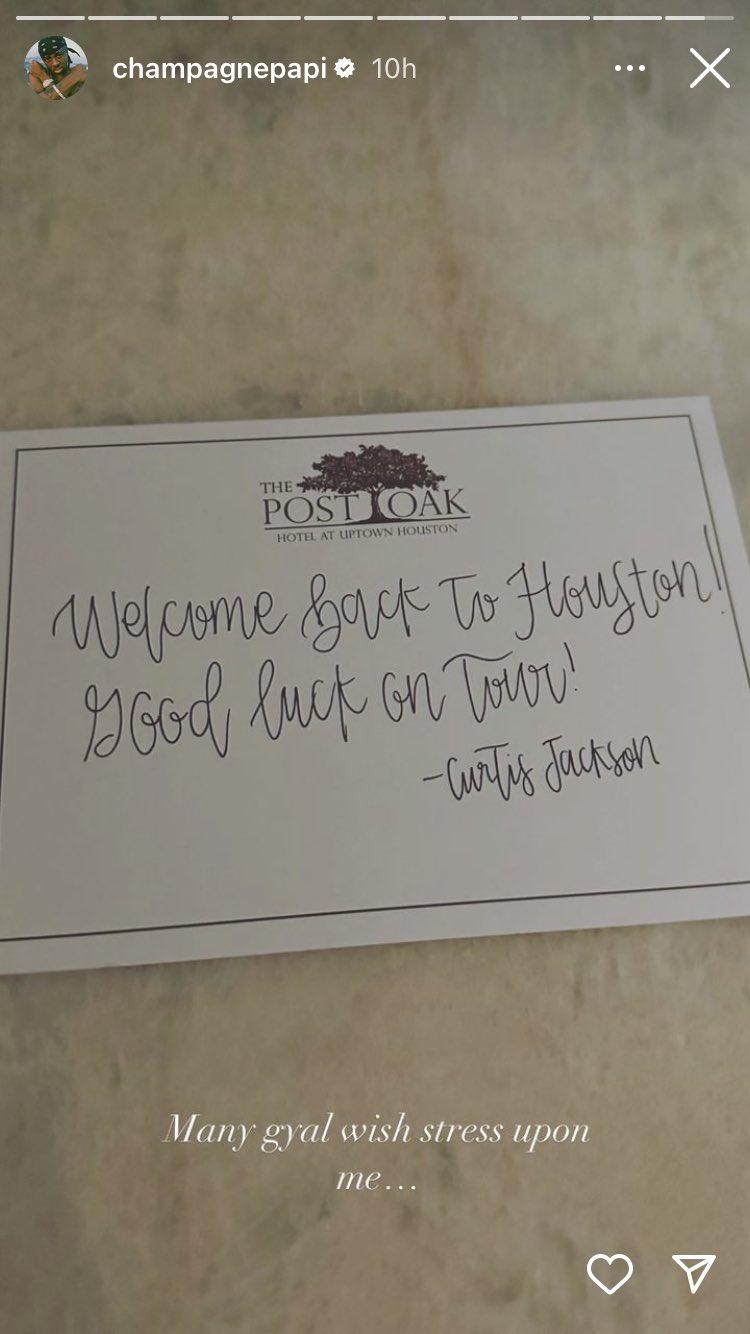 champagnepapi 10h
THE
POST OAK
HOTEL AT UPTOWN HOUSTON
Welcome back to Houston!
Good luck on Tour!
-Curtis Jackson
Many gyal wish stress upon
me...